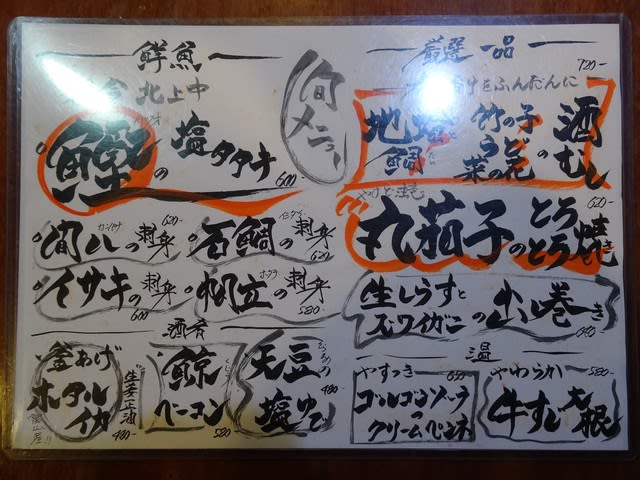 旬メニュー
鮮魚
北上中
鰹の塩タタキ
600-
間八の刺身
カンパチ
620-
石鯛の刺身
イシダイ
620
イサキの刺身
600
帆立の刺身
ホタテ
580-
酒肴
釜あげ
ホタルイカ
生姜正油
480-
鯨
ベーコン
くじら
580-
天豆
塩ゆで
480-
厳選一品
720-
をふんだんに
地
鯛
と
竹の子
うど
菜の花
の
酒むし
丸茄子のとろとろ焼き
620-
生しらすと
ズワイガニの出し巻き
温
やすっき
650
ゴルゴンゾーラ
の
クリームペンネ
やわらか
580-
牛すじ大根